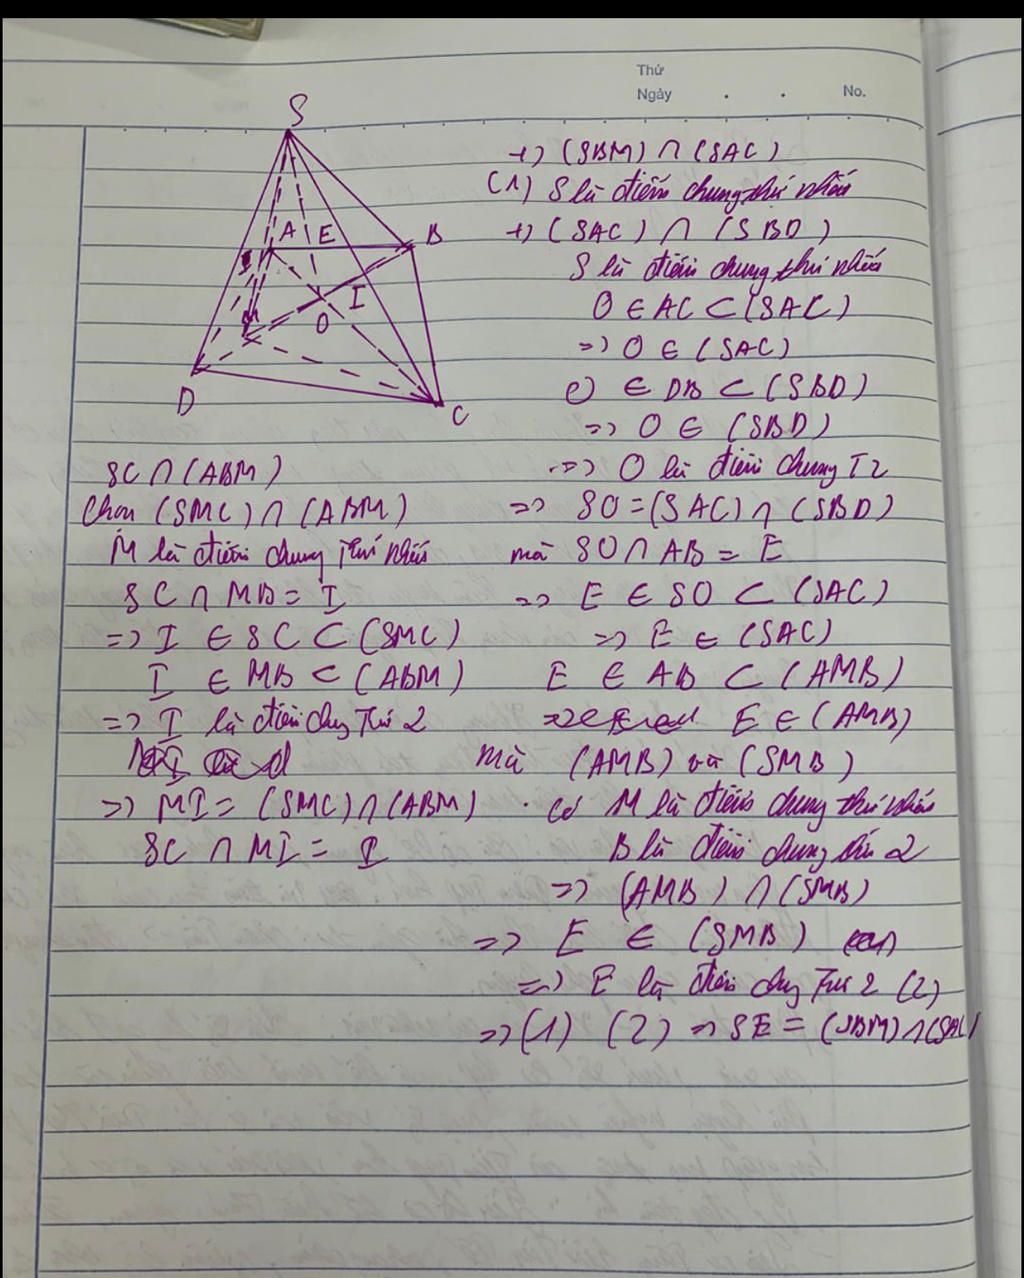 Thứ
Ngày . . No.
S
A E B
I
M
O
D
C
+) (SBM) ∩ (SAC)
(1) S là điểm chung thứ nhất
+) (SAC) ∩ (SBD)
S là điểm chung thứ nhất
O ∈ AC ⊂ (SAC)
=> O ∈ (SAC)
O ∈ DB ⊂ (SBD)
=> O ∈ (SBD)
=> O là điểm chung T2
=> SO = (SAC) ∩ (SBD)
mà SO ∩ AB = E
=> E ∈ SO ⊂ (SAC)
=> E ∈ (SAC)
E ∈ AB ⊂ (AMB)
E ∈ (AMB)
mà (AMB) và (SMB)
có M là điểm chung thứ nhất
B là điểm chung thứ 2
=> (AMB) ∩ (SMB)
=> E ∈ (SMB)
=> E là điểm chung Thứ 2 (2)
=> (1) (2) => SE = (SBM) ∩ (SAC)
SC ∩ (ABM)
Chọn (SMC) ∩ (ABM)
M là điểm chung thứ nhất
SC ∩ MB = I
=> I ∈ SC ⊂ (SMC)
I ∈ MB ⊂ (ABM)
=> I là điểm chung Thứ 2
=> MI = (SMC) ∩ (ABM)
SC ∩ MI = I